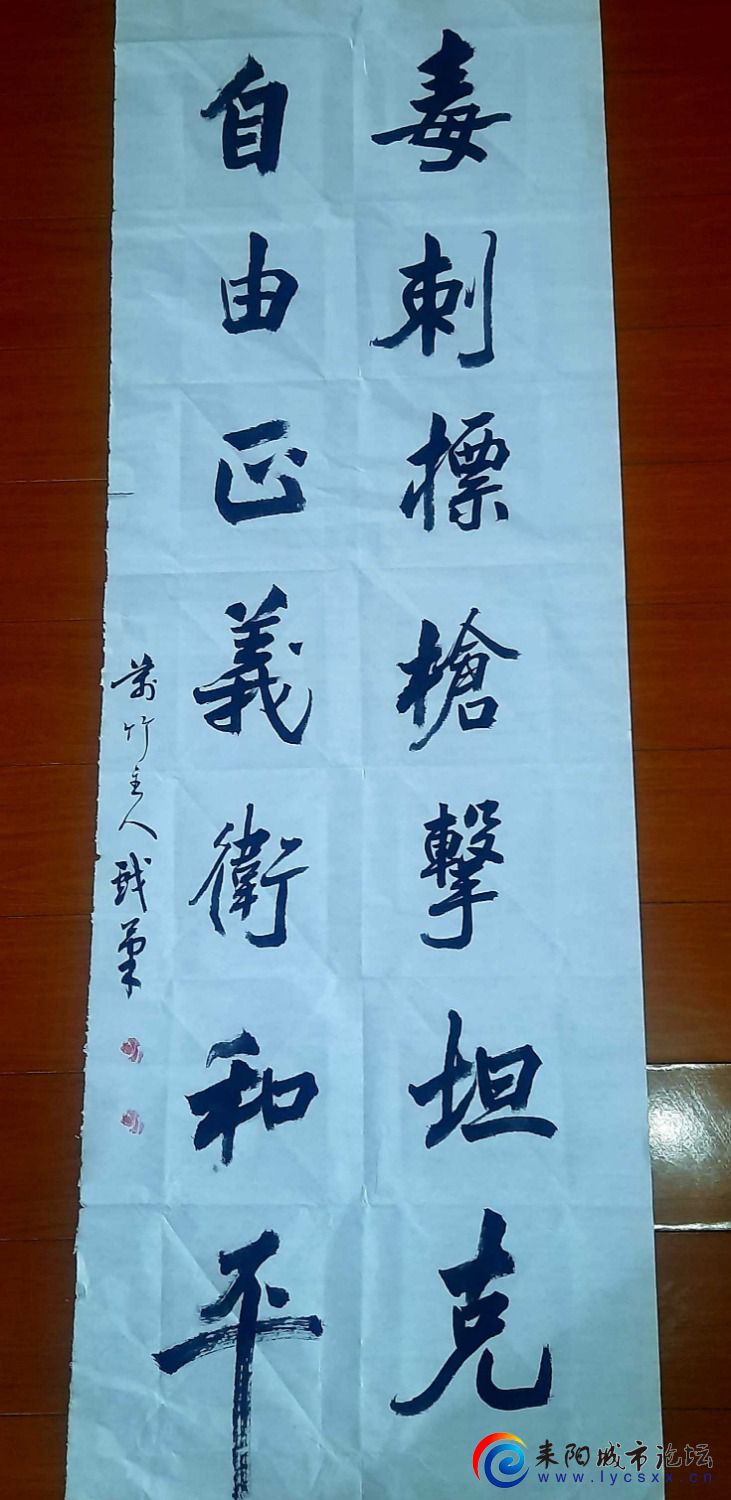 毒刺摽槍擊坦克
自由正義衛和平
竹主人戲筆
耒阳城市论坛
www.lycsxx.cn